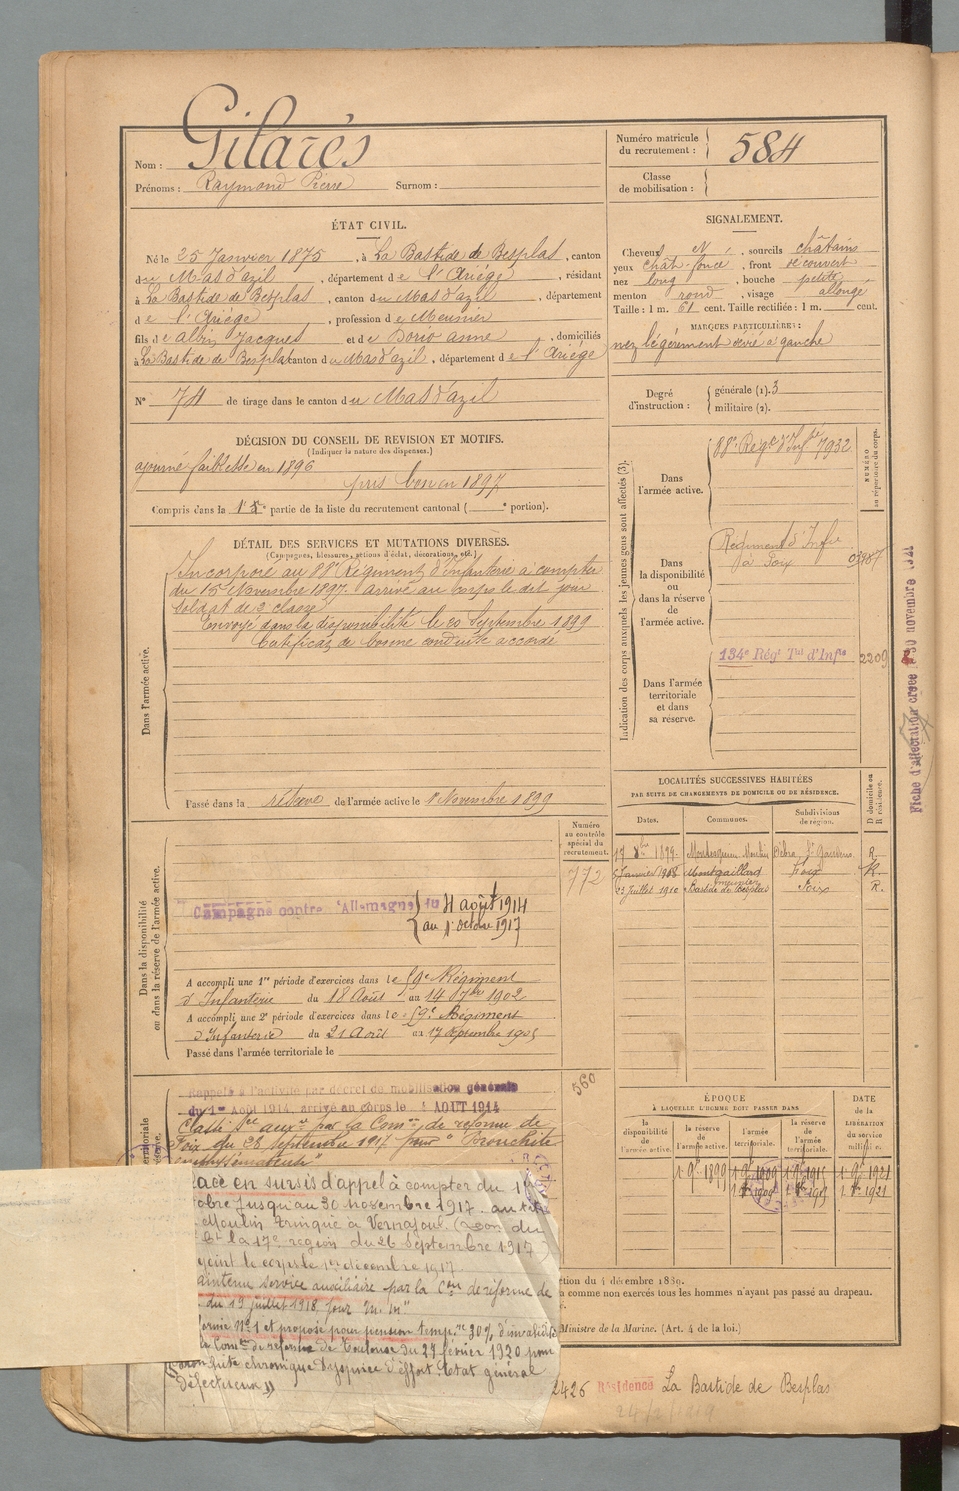 Nom : Gilarés
Prénoms : Raymond Pierre Surnom :
Numéro matricule du recrutement : 584
Classe de mobilisation :
ÉTAT CIVIL.
Né le 25 Janvier 1875, à La Bastide de Besplas, canton
du Mas d'azil, département de l'Ariège, résidant
à La Bastide de Besplas, canton du Mas d'azil, département
de l'Ariège, profession de Meunier
fils de Albin Jacques et de Dorio anne, domiciliés
à La Bastide de Besplas canton du Mas d'azil, département de l'Ariège
N° 74 de tirage dans le canton du Mas d'azil
SIGNALEMENT.
Cheveux N, sourcils châtains
yeux chât-foncé, front découvert
nez long, bouche petite
menton rond, visage allongé
Taille : 1 m. 61 cent. Taille rectifiée : 1 m. cent.
MARQUES PARTICULIÈRES :
nez légèrement dévié a gauche
Degré d'instruction : générale (1). 3
militaire (2).
DÉCISION DU CONSEIL DE REVISION ET MOTIFS.
(Indiquer la nature des dispenses.)
ajourné faiblesse en 1896
pris bon en 1897
Compris dans la 1e partie de la liste du recrutement cantonal ( e portion).
DÉTAIL DES SERVICES ET MUTATIONS DIVERSES.
(Campagnes, blessures, actions d'éclat, décorations, etc.)
Dans l'armée active.
Incorporé au 88e Régiment d'Infanterie à compter
du 15 Novembre 1897. arrivé au corps le dit jour
Soldat de 2e classe
Envoyé dans la disponibilité le 20 Septembre 1899
Certificat de bonne conduite accordé
Passé dans la réserve de l'armée active le 1er Novembre 1899
Indication des corps auxquels les jeunes gens sont affectés (3).
NUMÉRO au répertoire du corps.
Dans l'armée active.
88e Régt d'Infie 7932
Dans la disponibilité ou dans la réserve de l'armée active.
Régiment d'Infie
à Foix
Dans l'armée territoriale et dans sa réserve.
134e Régt Tal d'Infie 2209
LOCALITÉS SUCCESSIVES HABITÉES
PAR SUITE DE CHANGEMENTS DE DOMICILE OU DE RÉSIDENCE.
Dates. Communes. Subdivisions de région. D domicile ou R résidence.
1899 St Gaudens R
Janvier 1908 Montgaillard Foix R.
23 Juillet 1910 Bastide de Besplas Foix R.
Dans la disponibilité ou dans la réserve de l'armée active.
Numéro au contrôle spécial du recrutement.
772
Campagne contre l'Allemagne du 4 août 1914
au 1er octobre 1917
A accompli une 1re période d'exercices dans le 59e Régiment
d'Infanterie du 18 Août au 14 7bre 1902
A accompli une 2e période d'exercices dans le 59e Régiment
d'Infanterie du 21 Août au 17 Septembre 1905
Passé dans l'armée territoriale le
560
Rappelé à l'activité par décret de mobilisation générale
du 1er Août 1914, arrivé au corps le 4 AOUT 1914
Classé Sce auxre par la Comon de réforme de
Foix du 28 septembre 1917 pour "Bronchite
emphysémateuse"
lacé en sursis d'appel à compter du 1er
obre jusqu'au 30 novembre 1917. au titre
Moulin à Vernajoul. (Don du
la 17e région du 26 Septembre 1917)
joint le corps le 1er décembre 1917.
aintenu service auxiliaire par la Con de réforme de
du 19 juillet 1918, pour "m. m"
formé N°1 et proposé pour pension tempre 30% d'invalidité
la Comon de réforme de Toulouse du 27 février 1920 pour
Bronchite chronique Dyspnée d'effort. Etat général
défectueux))
ÉPOQUE
À LAQUELLE L'HOMME DOIT PASSER DANS
DATE de la LIBÉRATION du service militaire.
la disponibilité de l'armée active.
la réserve de l'armée active.
l'armée territoriale.
la réserve de l'armée territoriale.
1 9bre 1899 1 9bre 1909 1 9bre 1915 1 9bre 1921
ction du 4 décembre 1889.
comme non exercés tous les hommes n'ayant pas passé au drapeau.
Ministre de la Marine. (Art. 4 de la loi.)
2426 Résidence La Bastide de Besplas